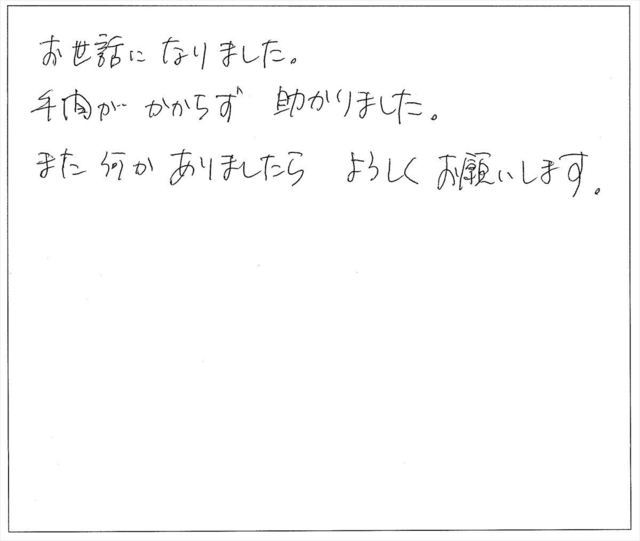 お世話になりました。
手間が かからず 助かりました。
また 何か ありましたら よろしく お願いします。